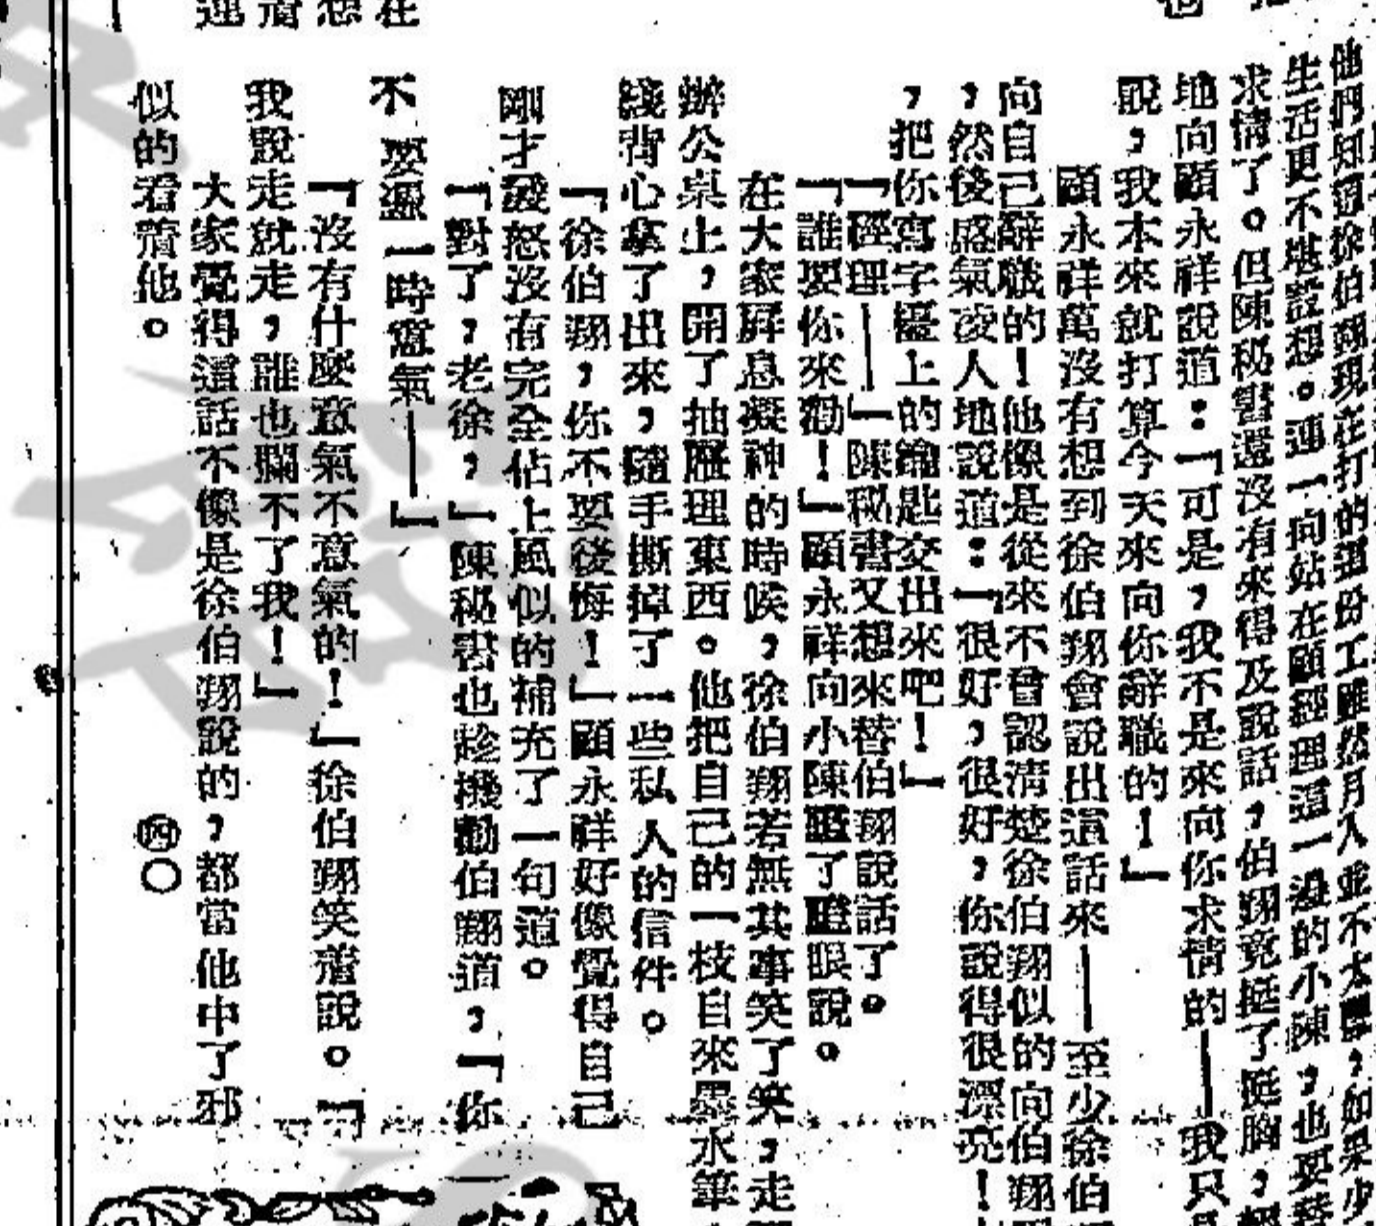 他們知道徐伯翔現在打的這份工雖然月入並不太豐，如果少
生活更不堪設想。連一向站在顧經理這一邊的小陳，也要替
求情了。但陳秘書還沒有來得及說話，伯翔竟挺了挺胸，輕
地向顧永祥說道：「可是，我不是來向你求情的——我只是
說，我本來就打算今天來向你辭職的！」
顧永祥萬沒有想到徐伯翔會說出這話來——至少徐伯
向自己辭職的！他像是從來不曾認清楚徐伯翔似的向伯翔
，然後盛氣凌人地說道：「很好，很好，你說得很漂亮！
，把你寫字檯上的鑰匙交出來吧！」
「經理——」陳秘書又想來替伯翔說話了。
「誰要你來勸！」顧永祥向小陳瞪了瞪眼說。
在大家屏息凝神的時候，徐伯翔若無其事笑了笑，走
辦公桌上，開了抽屜理東西。他把自己的一枝自來墨水筆
綫背心拿了出來，隨手撕掉了一些私人的信件。
「徐伯翔，你不要後悔！」顧永祥好像覺得自己
剛才發怒沒有完全佔上風似的補充了一句道。
「對了，老徐，」陳秘書也趁機勸伯翔道，「你
不要逞一時意氣——」
「沒有什麼意氣不意氣的！」徐伯翔笑着說。「
我說走就走，誰也攔不了我！」
大家覺得這話不像是徐伯翔說的，都當他中了邪
似的看着他。
㊃〇